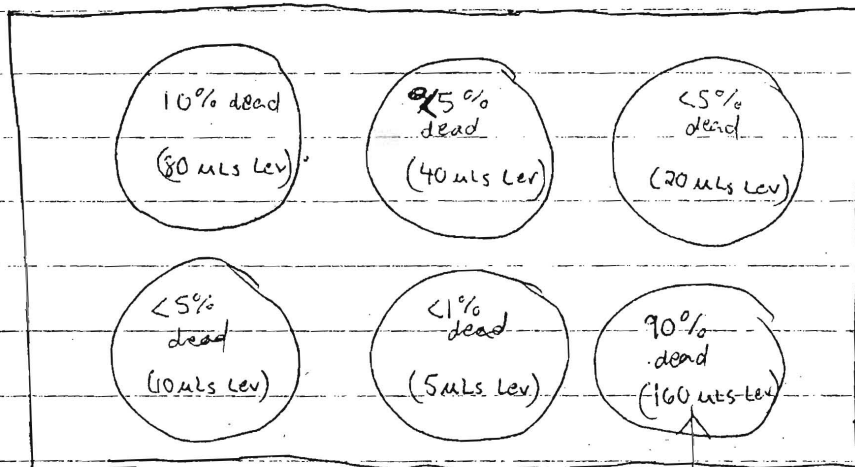 10% dead
(80 uLs Lev)
<5%
dead
(40 uLs Lev)
<5%
dead
(20 uLs Lev)
<5%
dead
(10 uLs Lev)
<1%
dead
(5 uLs Lev)
90%
dead
(160 uLs Lev)